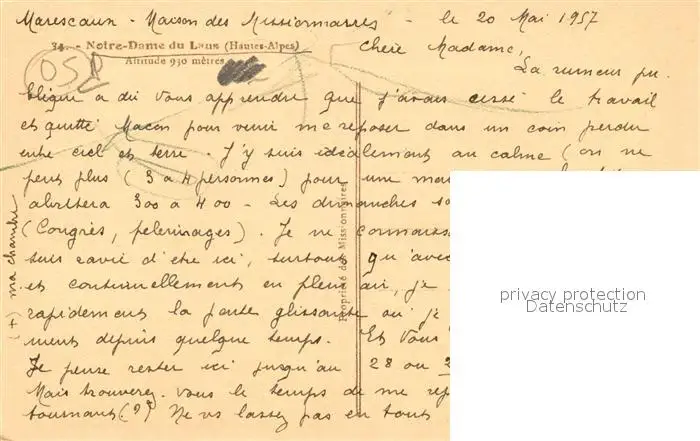 Marescaux - Maison des Missionnaires - le 20 Mai 1957
34. - Notre-Dame du Laus (Hautes-Alpes)
Altitude 930 mètres
OSP
Chère Madame,
La rumeur pu-
blique a dû vous apprendre que j'avais cessé le travail
et quitté Macon pour venir me reposer dans un coin perdu
entre ciel et terre. J'y suis idéalement au calme (on ne
peut plus (3 à 4 personnes) pour une
abritera 300 à 400 - Les dimanches
(Congrès, pèlerinages). Je ne
suis ravie d'être ici, surtout qu'avec
et continuellement en plein air, je
rapidement la pente glissante où j
ment depuis quelque temps. Et vous
Je pense rester ici jusqu'au 28 ou
Mais trouverez-vous le temps de me
tournant (?) Ne vs lassez pas en tous
(+) ma chambre
Propriété des Missionnaires
privacy protection
Datenschutz